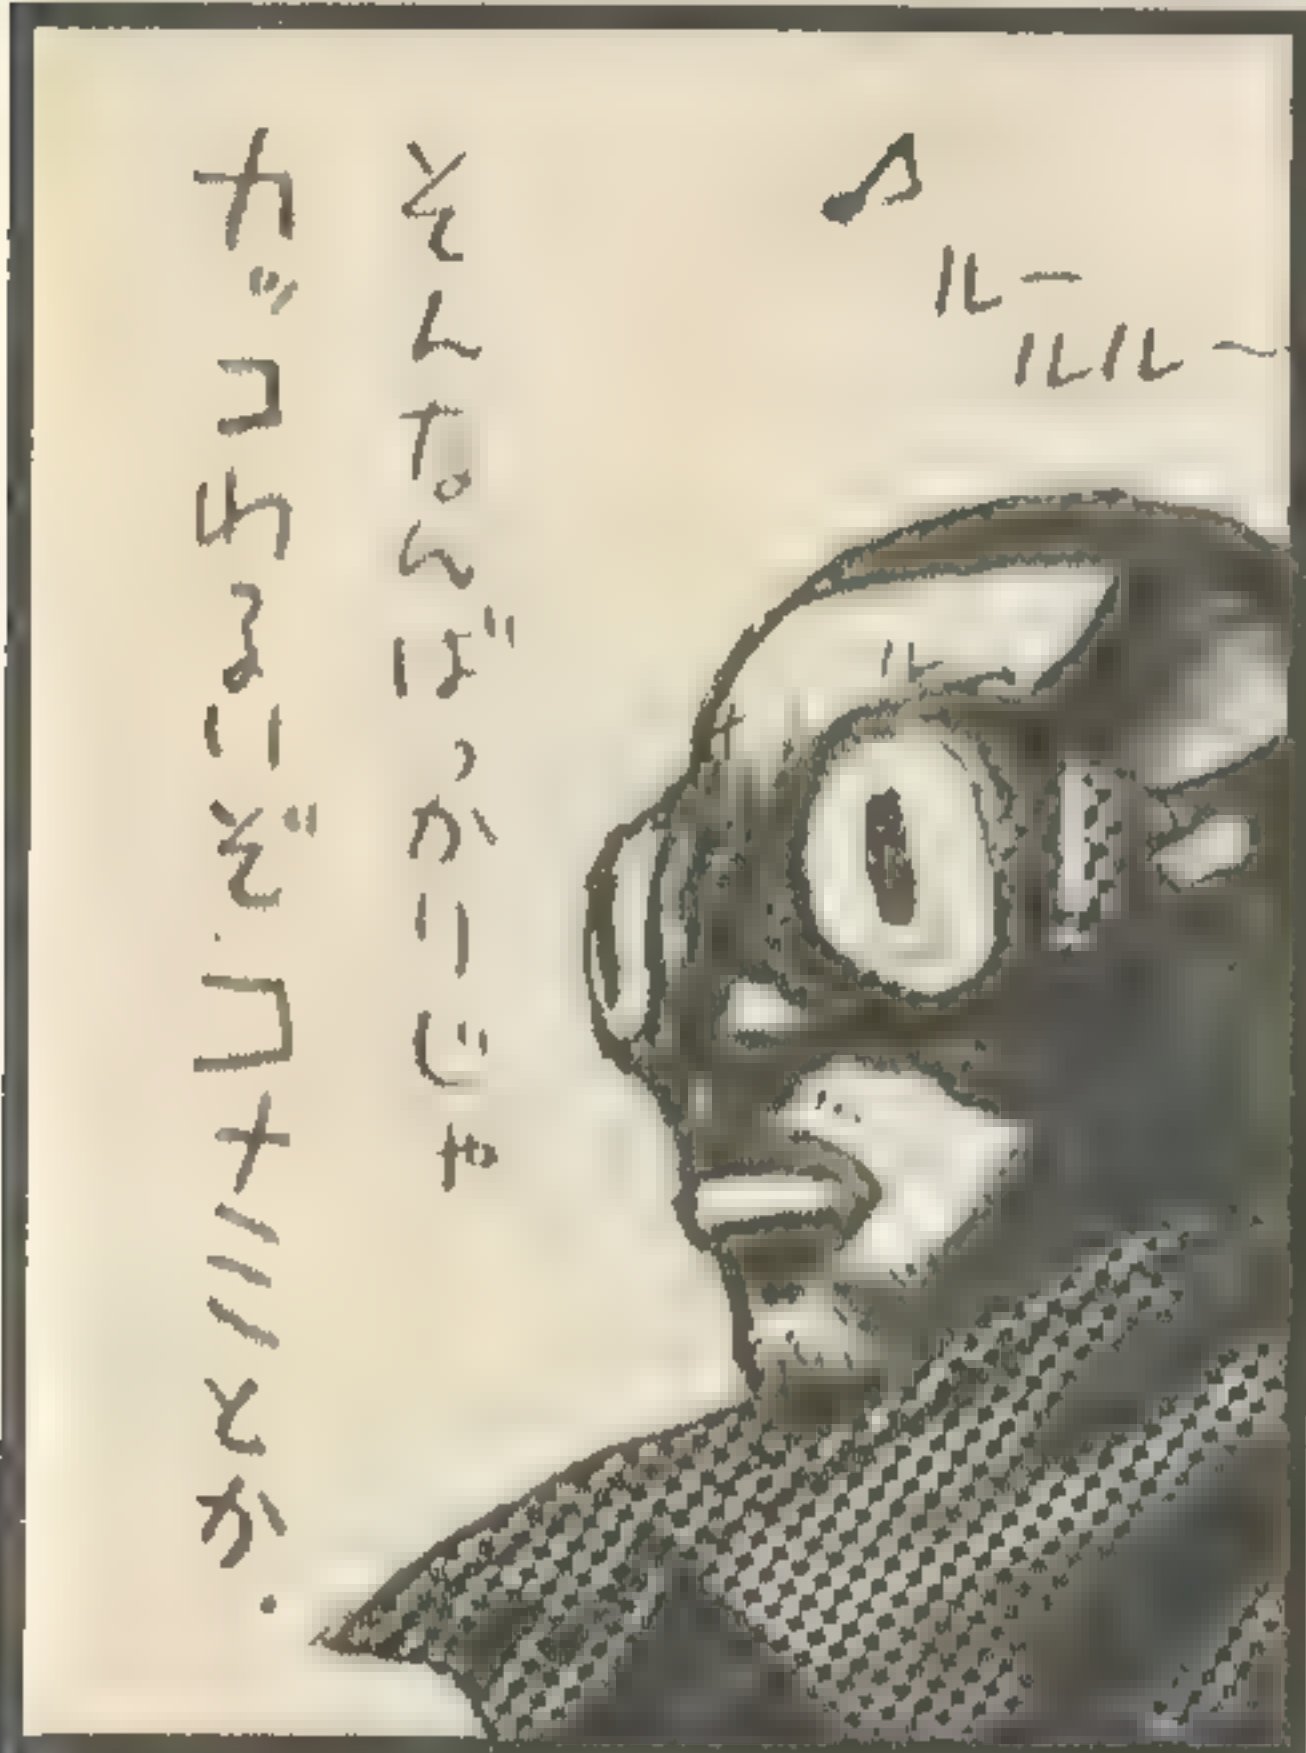 ♪
ルー
ルルー
そんなんばっかりじゃ
カッコわるいぞコナミとか.